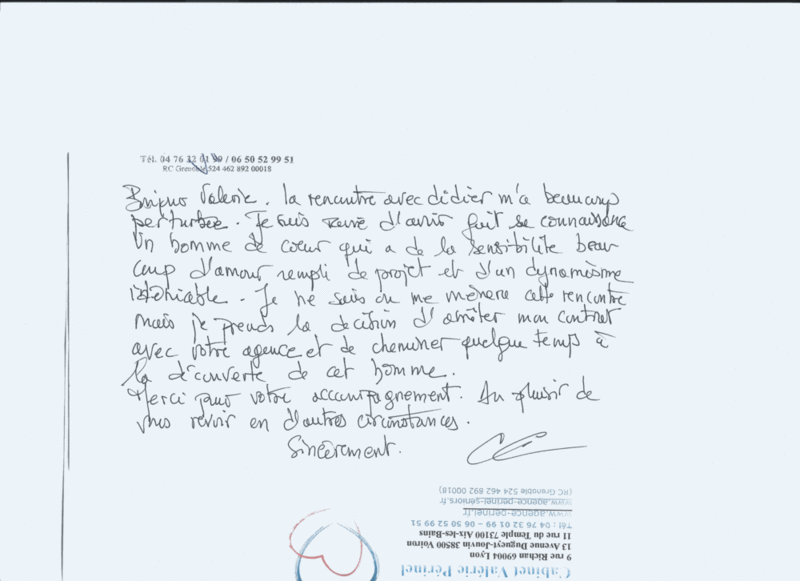 Tél. 04 76 32 01 99 / 06 50 52 99 51
RC Grenoble 524 462 892 00018
Bonjour Valerie. la rencontre avec didier m'a beaucoup
perturbée. Je suis ravie d'avoir fait sa connaissance
Un homme de coeur qui a de la sensibilite beau
coup d'amour rempli de projet et d'un dynamisme
indeniable. Je ne sais ou me mènera cette rencontre
mais je prends la decision d'arrêter mon contrat
avec votre agence et de cheminer quelque temps à
la découverte de cet homme.
Merci pour votre accompagnement. Au plaisir de
vous revoir en d'autres circonstances.
Sincèrement.
(RC Grenoble 524 462 892 00018)
www.agence-perinel-seniors.fr
www.agence-perinel.fr
Tél : 04 76 32 01 99 - 06 50 52 99 51
11 rue du Temple 73100 Aix-les-Bains
13 Avenue Dugueyt-Jouvin 38500 Voiron
9 rue Richan 69004 Lyon
Cabinet Valérie Périnel